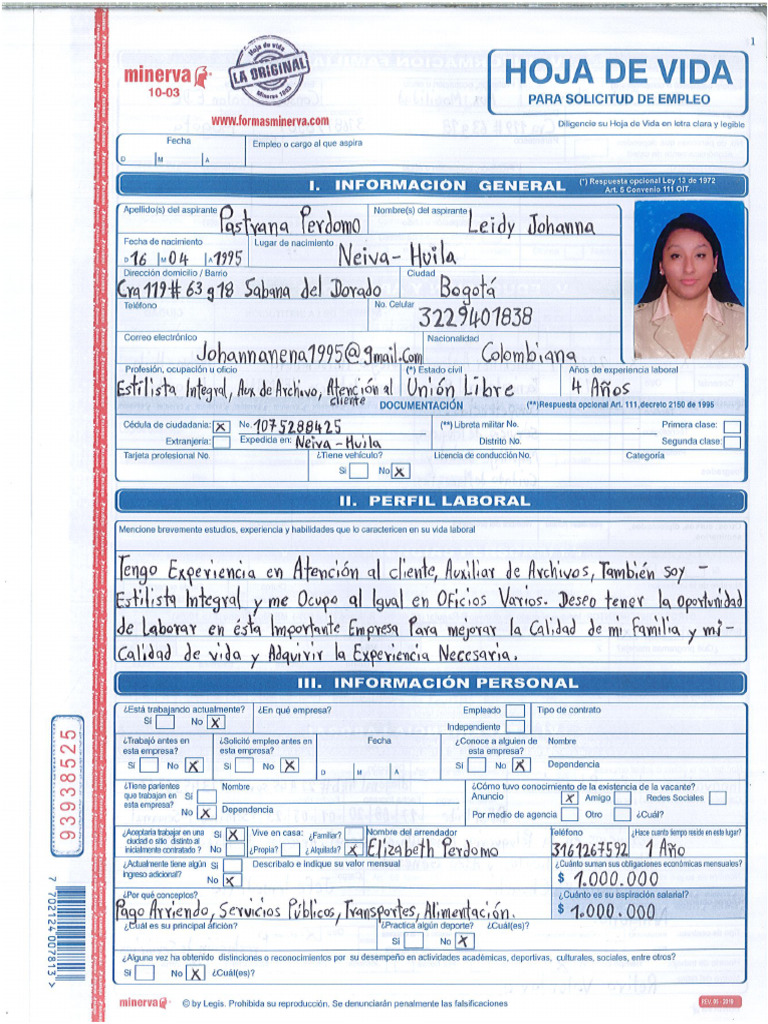 1
minerva
10-03
Hoja de vida
LA ORIGINAL
Minerva 1003
www.formasminerva.com
HOJA DE VIDA
PARA SOLICITUD DE EMPLEO
Diligencie su Hoja de Vida en letra clara y legible
Fecha
Empleo o cargo al que aspira
D M A
I. INFORMACIÓN GENERAL
(*) Respuesta opcional Ley 13 de 1972
Art. 5 Convenio 111 OIT.
Apellido(s) del aspirante Pastrana Perdomo Nombre(s) del aspirante Leidy Johanna
Fecha de nacimiento Lugar de nacimiento
D 16 M 04 A 1995 Neiva-Huila
Dirección domicilio / Barrio Ciudad
Cra 119 # 63 g 18 Sabana del Dorado Bogotá
Teléfono No. Celular
3229401838
Correo electrónico Nacionalidad
Johannanena1995@gmail.com Colombiana
Profesión, ocupación u oficio (*) Estado civil Años de experiencia laboral
Estilista Integral, Aux de Archivo, Atención al cliente Unión Libre 4 Años
DOCUMENTACIÓN (**)Respuesta opcional Art. 111,decreto 2150 de 1995
Cédula de ciudadanía: X No. 1075288425 (**) Libreta militar No. Primera clase:
Extranjería: Expedida en: Neiva-Huila Distrito No. Segunda clase:
Tarjeta profesional No. ¿Tiene vehículo? Licencia de conducción No. Categoría
Sí No X
II. PERFIL LABORAL
Mencione brevemente estudios, experiencia y habilidades que lo caractericen en su vida laboral
Tengo Experiencia en Atención al cliente, Auxiliar de Archivos, También soy -
Estilista Integral y me Ocupo al Igual en Oficios Varios. Deseo tener la Oportunidad
de Laborar en ésta Importante Empresa Para mejorar la Calidad de mi Familia y mi -
Calidad de vida y Adquivir la Experiencia Necesaria.
III. INFORMACIÓN PERSONAL
¿Está trabajando actualmente? ¿En qué empresa? Empleado Tipo de contrato
Sí No X Independiente
¿Trabajó antes en esta empresa? ¿Solicitó empleo antes en esta empresa? Fecha ¿Conoce a alguien de esta empresa? Nombre
Sí No X Sí No X D M A Sí No X Dependencia
¿Tiene parientes que trabajan en esta empresa? Sí Nombre ¿Cómo tuvo conocimiento de la existencia de la vacante?
Anuncio X Amigo Redes Sociales
No X Dependencia Por medio de agencia Otro ¿Cuál?
¿Aceptaría trabajar en una ciudad o sitio distinto al inicialmente contratado? Sí X No Vive en casa: ¿Familiar? ¿Propia? ¿Alquilada? X Nombre del arrendador Teléfono ¿Hace cuanto tiempo reside en este lugar?
Elizabeth Perdomo 3161267592 1 Año
¿Actualmente tiene algún ingreso adicional? Sí No X Descríbalo e indique su valor mensual ¿Cuánto suman sus obligaciones económicas mensuales?
$ 1.000.000
¿Por qué conceptos? ¿Cuánto es su aspiración salarial?
Pago Arriendo, Servicios Públicos, Transportes, Alimentación. $ 1.000.000
¿Cuál es su principal afición? ¿Practica algún deporte? ¿Cuál(es)?
Sí No X
¿Alguna vez ha obtenido distinciones o reconocimientos por su desempeño en actividades académicas, deportivas, culturales, sociales, entre otros?
Sí No X ¿Cuál(es)?
minerva © by Legis. Prohibida su reproducción. Se denunciarán penalmente las falsificaciones
93938525
7 702124 007813 >